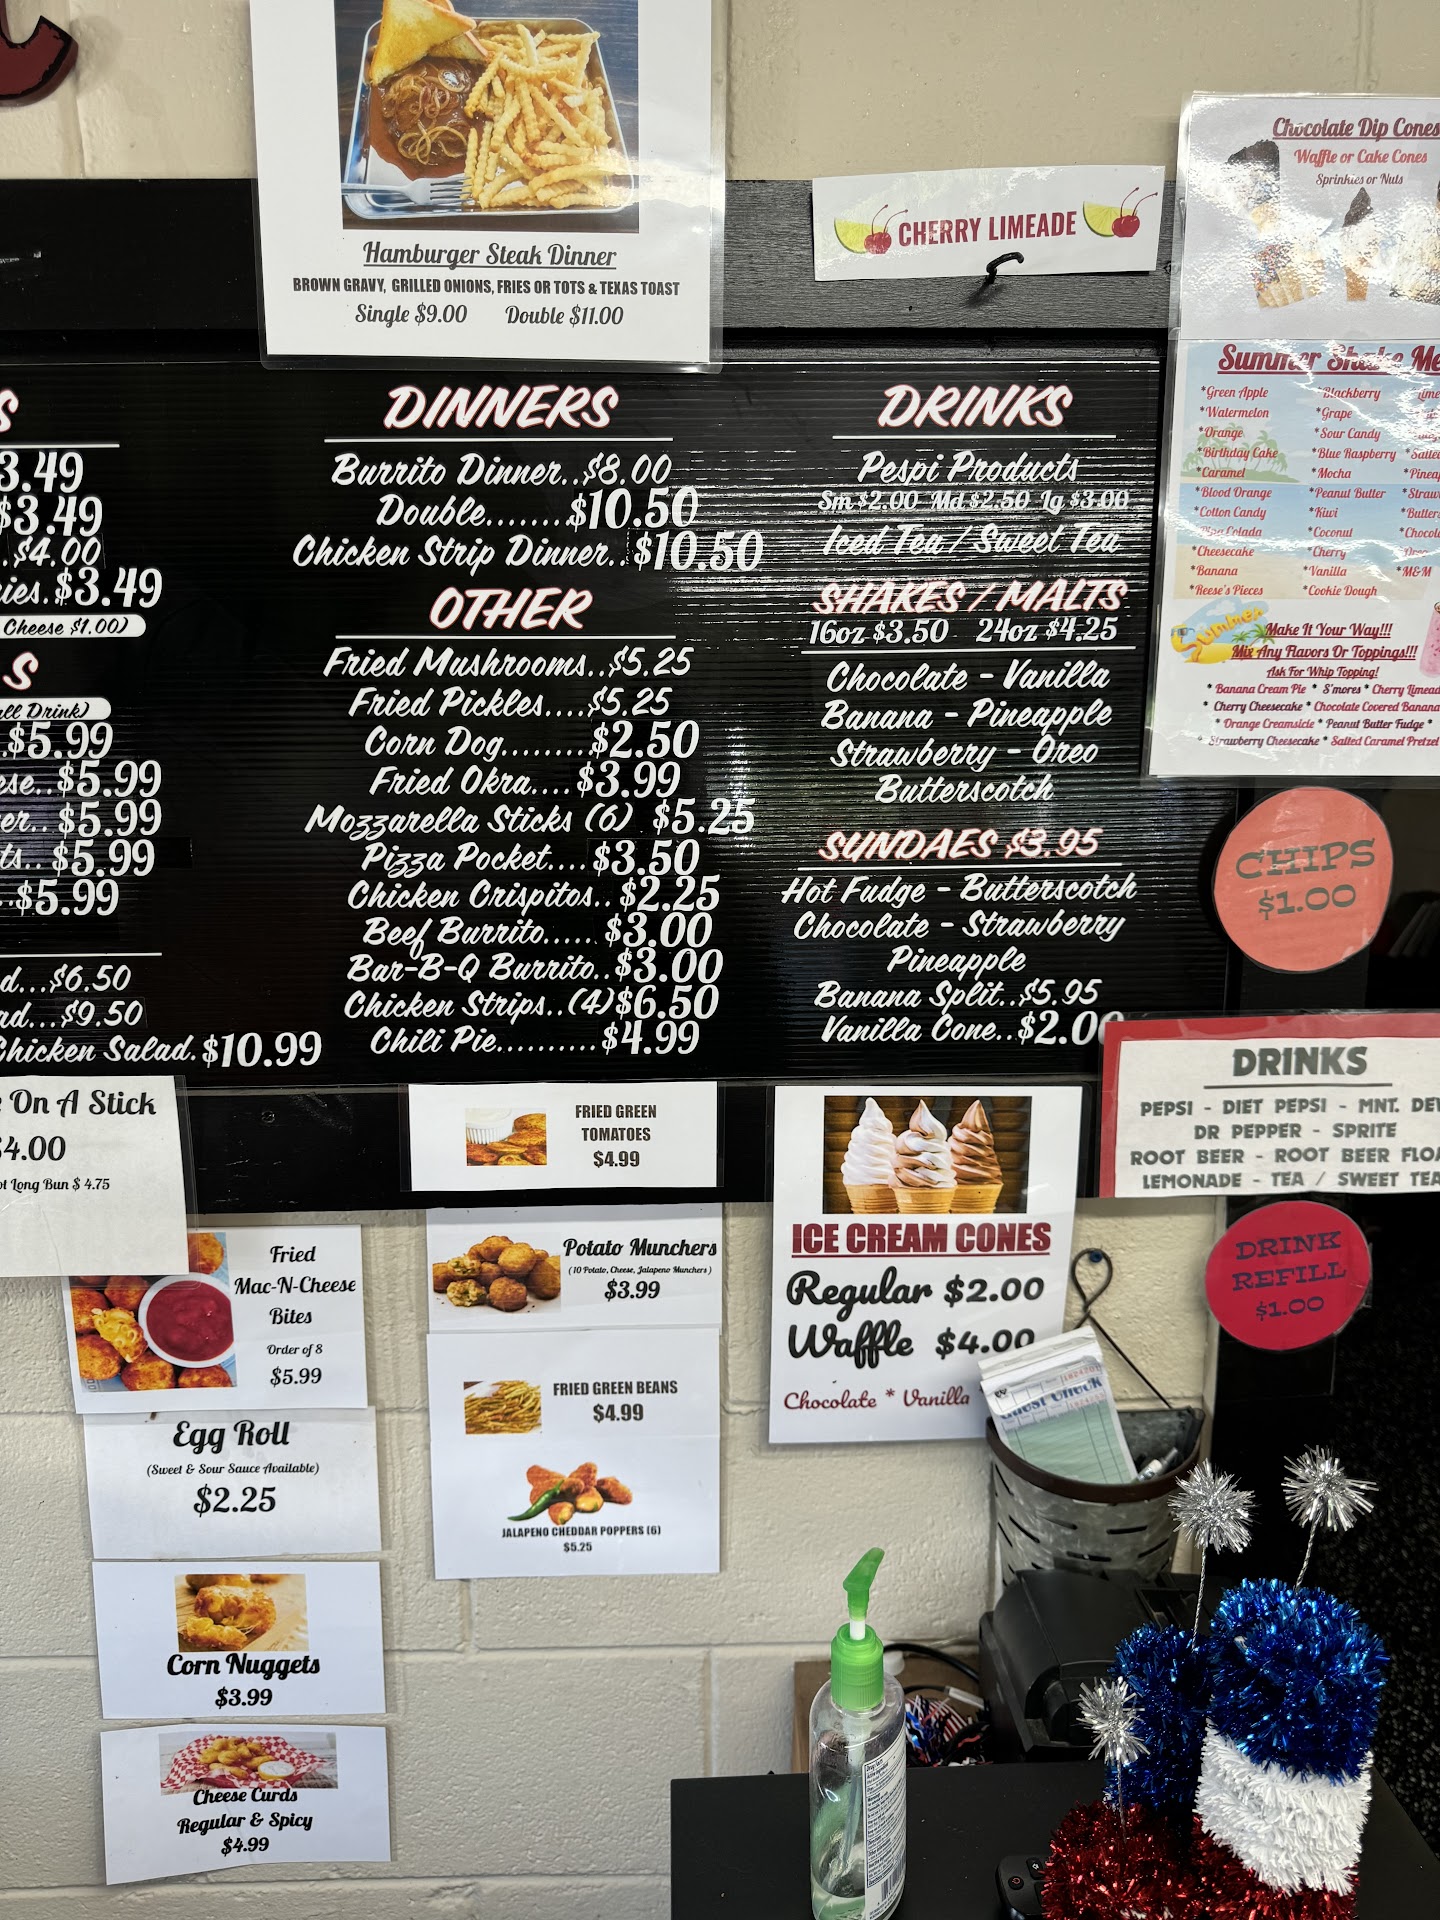 Hamburger Steak Dinner
BROWN GRAVY, GRILLED ONIONS, FRIES OR TOTS & TEXAS TOAST
Single $9.00 Double $11.00
CHERRY LIMEADE
Chocolate Dip Cones
Waffle or Cake Cones
Sprinkles or Nuts
S
3.49
$3.49
.$4.00
ies.$3.49
Cheese $1.00)
S
all Drink)
.$5.99
ese..$5.99
er..$5.99
ts..$5.99
..$5.99
d...$6.50
ad...$9.50
Chicken Salad.$10.99
DINNERS
Burrito Dinner..$8.00
Double.......$10.50
Chicken Strip Dinner..$10.50
OTHER
Fried Mushrooms..$5.25
Fried Pickles....$5.25
Corn Dog........$2.50
Fried Okra....$3.99
Mozzarella Sticks (6) $5.25
Pizza Pocket....$3.50
Chicken Crispitos..$2.25
Beef Burrito.....$3.00
Bar-B-Q Burrito..$3.00
Chicken Strips..(4)$6.50
Chili Pie..........$4.99
DRINKS
Pespi Products
Sm $2.00 Md $2.50 Lg $3.00
Iced Tea / Sweet Tea
SHAKES / MALTS
16oz $3.50 24oz $4.25
Chocolate - Vanilla
Banana - Pineapple
Strawberry - Oreo
Butterscotch
SUNDAES $3.95
Hot Fudge - Butterscotch
Chocolate - Strawberry
Pineapple
Banana Split..$5.95
Vanilla Cone..$2.00
Summer Shake Me
*Green Apple *Blackberry
*Watermelon *Grape
*Orange *Sour Candy
*Birthday Cake *Blue Raspberry *Salte
*Caramel *Mocha *Pineap
*Blood Orange *Peanut Butter *Straw
*Cotton Candy *Kiwi *Butters
*Pina Colada *Coconut *Chocol
*Cheesecake *Cherry *Oreo
*Banana *Vanilla *M&M
*Reese's Pieces *Cookie Dough
Summer
Make It Your Way!!!
Mix Any Flavors Or Toppings!!!
Ask For Whip Topping!
* Banana Cream Pie * S'mores * Cherry Limead
* Cherry Cheesecake * Chocolate Covered Banana
* Orange Creamsicle * Peanut Butter Fudge *
* Strawberry Cheesecake * Salted Caramel Pretzel
CHIPS
$1.00
DRINKS
PEPSI - DIET PEPSI - MNT. DEW
DR PEPPER - SPRITE
ROOT BEER - ROOT BEER FLOA
LEMONADE - TEA / SWEET TEA
DRINK
REFILL
$1.00
On A Stick
$4.00
ot Long Bun $ 4.75
FRIED GREEN
TOMATOES
$4.99
Fried
Mac-N-Cheese
Bites
Order of 8
$5.99
Potato Munchers
(10 Potato, Cheese, Jalapeno Munchers)
$3.99
ICE CREAM CONES
Regular $2.00
Waffle $4.00
Chocolate * Vanilla
Guest Check
Egg Roll
(Sweet & Sour Sauce Available)
$2.25
FRIED GREEN BEANS
$4.99
JALAPENO CHEDDAR POPPERS (6)
$5.25
Corn Nuggets
$3.99
Cheese Curds
Regular & Spicy
$4.99